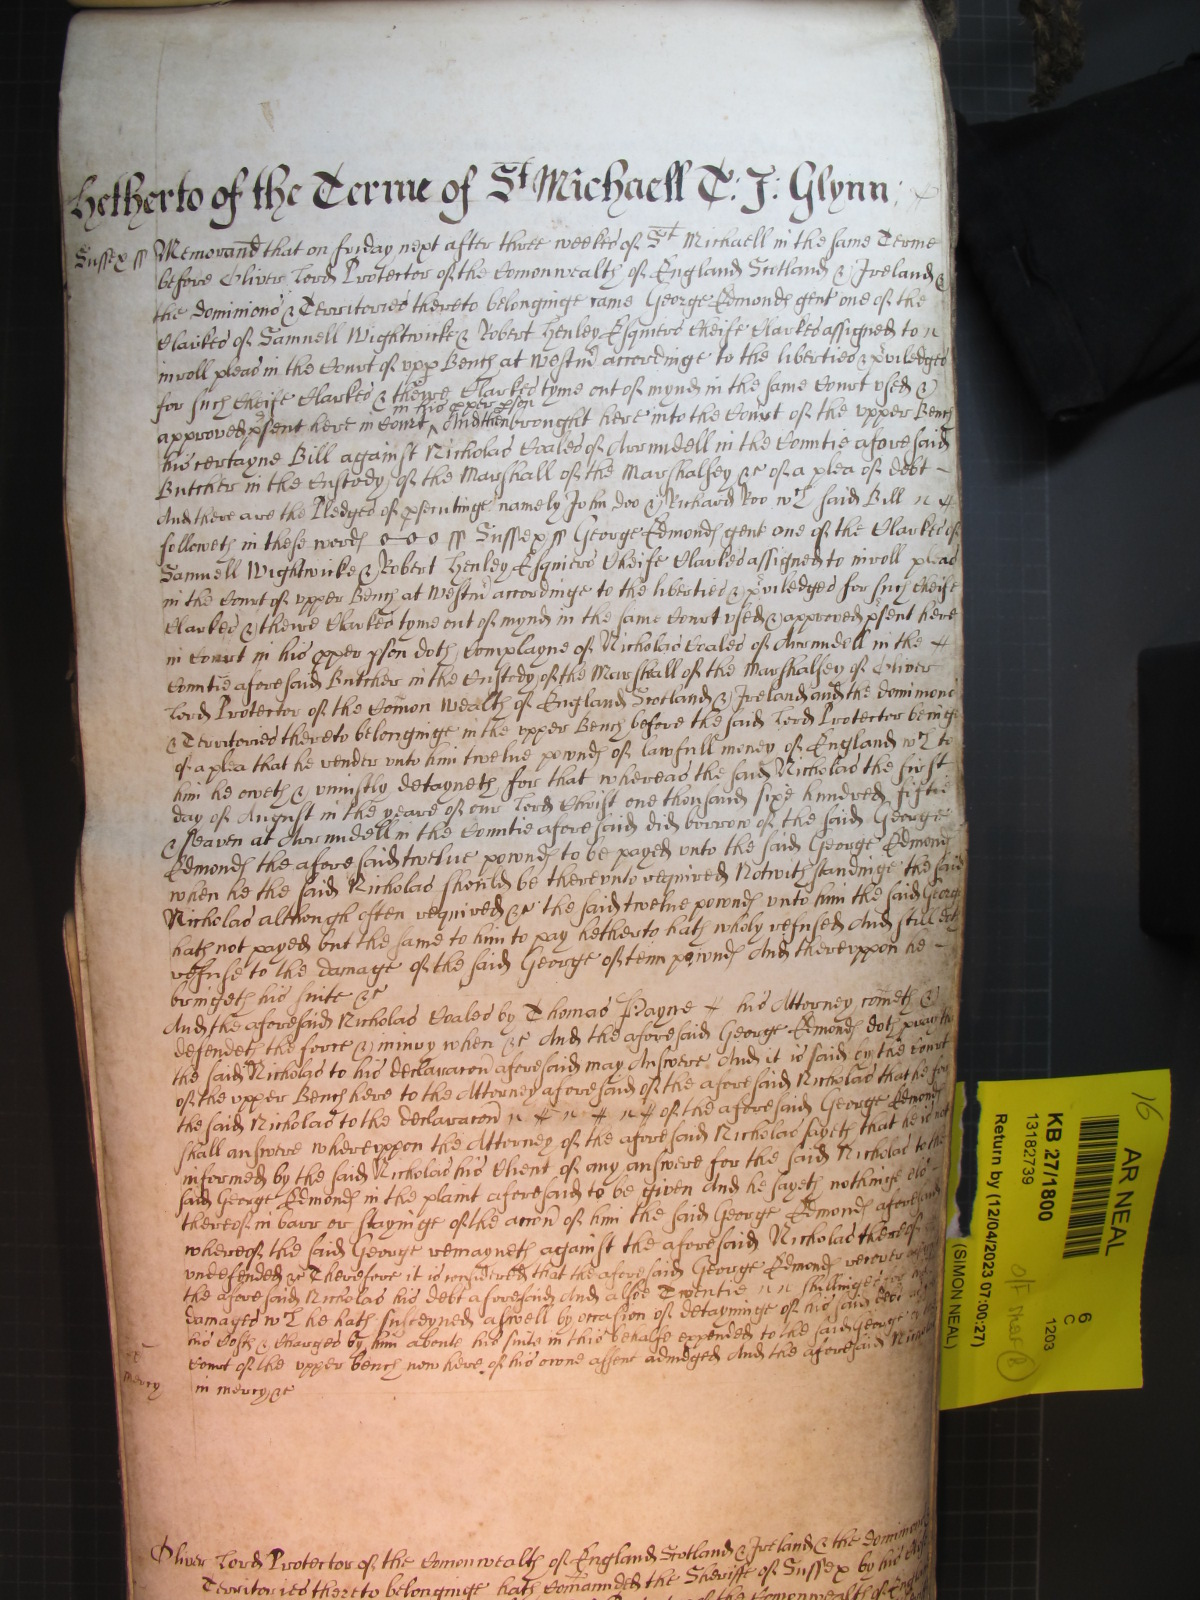 hetherto of the Terme of St Michaell T: J: Glynn:
Sussex ss Memorand that on friday next after three weekes of St Michaell in the same Terme
before Oliver Lord Protector of the Comonwealth of England Scotland & Ireland &
the dominions & Territories thereto belonginge came George Edmonds gent one of the
Clarkes of Samuell Wightwicke & Robert Henley Esquiers Cheife Clarkes assigned to
inroll pleas in the Court of upp Bench at Westm accordinge to the liberties & priviledges
for such Cheife Clarkes & theire Clarkes tyme out of mynd in the same Court used &
in his pper pson
approved psent here in Court And then brought here into the Court of the upper Bench
his certayne Bill against Nicholas Coales of Arrundell in the Countie aforesaid
Butcher in the Custody of the Marshall of the Marshalsey &c of a plea of debt
And there are the Pledges of psecutinge namely John doo & Richard Roo wch said Bill
followeth in these words ss Sussex ss George Edmonds gent one of the Clarkes of
Samuell Wightwicke & Robert Henley Esquiers Cheife Clarkes assigned to inroll pleas
in the Court of upper Bench at Westm accordinge to the liberties & priviledges for such Cheife
Clarkes & theire Clarkes tyme out of mynd in the same Court used & approved psent here
in Court in his pper pson doth Complayne of Nicholas Coales of Arrundell in the
Countie aforesaid Butcher in the Custody of the Marshall of the Marshalsey of Oliver
Lord Protector of the Comon wealth of England Scotland & Ireland and the dominions
& Territories thereto belonginge in the upper Bench before the said Lord Protector beinge
of a plea that he render unto him twelve pownds of lawfull money of England wch to
him he oweth & uniustly detayneth for that whereas the said Nicholas the first
day of August in the yeare of our Lord Christ one thousand sixe hundred fiftie
& seaven at Arrundell in the Countie aforesaid did borrow of the said George
Edmonds the aforesaid twelve pownds to be payed unto the said George Edmonds
when he the said Nicholas should be thereunto required Notwithstandinge the said
Nicholas although often required &c the said twelve pownds unto him the said George
hath not payed but the same to him to pay hetherto hath wholy refused And still doth
refuse to the damage of the said George of tenn pownds And thereuppon he
bringeth his suite &c
And the aforesaid Nicholas Coales by Thomas Payne his Attorney cometh &
defendeth the force & iniury when &c And the aforesaid George Edmonds doth pray that
the said Nicholas to his declaracon aforesaid may Answere And it is said by the Court
of the upper Bench here to the Attorney aforesaid of the aforesaid Nicholas that he for
the said Nicholas to the declaracon of the aforesaid George Edmonds
shall answere whereuppon the Attorney of the aforesaid Nicholas sayeth that he is not
informed by the said Nicholas his Client of any answere for the said Nicholas to the
said George Edmonds in the plaint aforesaid to be given And he sayeth nothinge els
thereof in barr or stayinge of the accon of him the said George Edmonds aforesaid
whereof the said George remayneth against the aforesaid Nicholas thereof
undefended &c Therefore it is considered that the aforesaid George Edmonds recover against
the aforesaid Nicholas his debt aforesaid And alsoe Twentie shillinges for his
damages wch he hath susteyned aswell by occasion of detayninge of his said debt as for
his Costs & Charges by him aboute his suite in this behalfe expended to the said George by the
Court of the upper bench now here of his owne assent adiudged And the aforesaid Nicholas
mercy
in mercy &c
Oliver Lord Protector of the Comonwealth of England Scotland & Ireland & the dominions
Territories thereto belonginge hath comanded the Sheriffe of Sussex by his
of the Comonwealth of England
16
AR NEAL
KB 27/1800
13182739
Return by (12/04/2023 07:00:27)
(SIMON NEAL)
6
C
1203